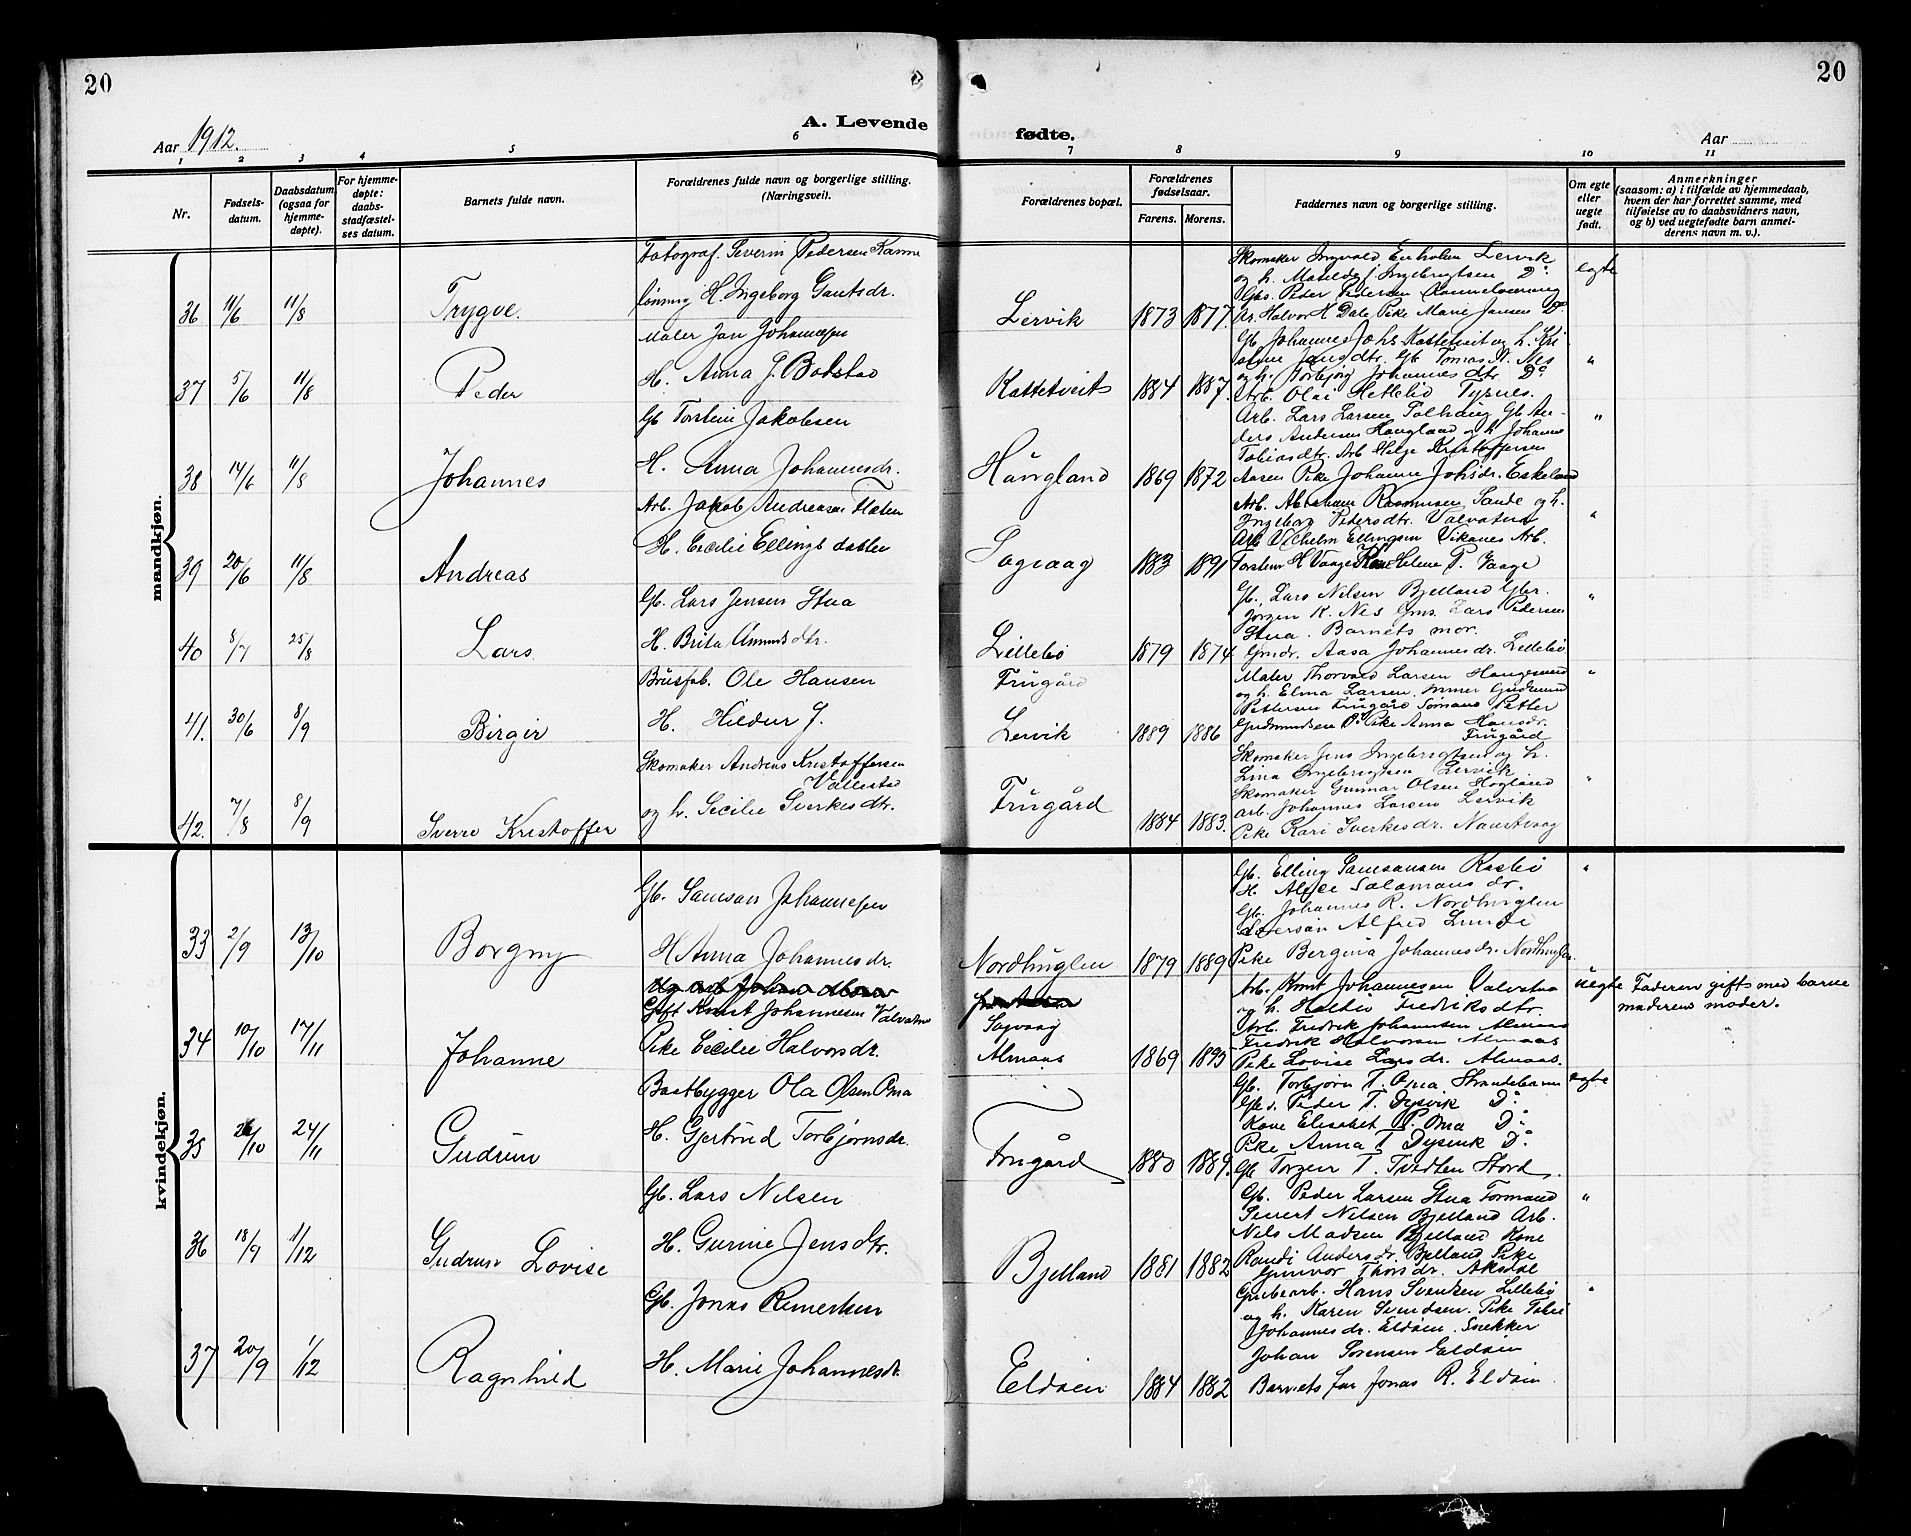 20
20
Aar 1912.
A. Levende
fødte.
Aar
1 2 3 4 5 6 7 8 9 10 11
Nr.
Fødsels-
datum.
Daabsdatum
(ogsaa for
hjemme-
døpte).
For hjemme-
døpte:
daabs-
stadfæstel-
ses datum.
Barnets fulde navn.
Forældrenes fulde navn og borgerlige stilling.
(Næringsvei).
Forældrenes bopæl.
Forældrenes
fødselsaar.
Farens. Morens.
Faddernes navn og borgerlige stilling.
Om egte
eller
uegte
født.
Anmerkninger
(saasom: a) i tilfælde av hjemmedaab,
hvem der har forrettet samme, med
tilføielse av to daabsvidners navn,
og b) ved uegtefødte barn anmel-
derens navn m. v.).
mandkjøn.
36 11/6 11/8 Trygve.
Fotograf. Severin Pedersen Kanne
lönning H. Ingeborg Gautsdr.
Lervik 1873 1877.
Skomaker Ingvald Lervik
og h. Matilde Ingebrigtsen Do
Gbs. Peder Pedersen
Ar. Halvor H Dale Pike Marie Jansen Do
egte
37 5/6 11/8 Peder
Maler Jan Johannesen
H. Anna J. Bobstad
Kattetveit 1884 1887.
Gb Johannes Johs Kattetveit og h. Kri
Gb Tomas N. Nes
og h. Torbjørg Johannesdtr Do
Arb. Olai Hetlebö Tysnes.
"
38 14/6 11/8 Johannes
Gb Torstein Jakobsen
H. Anna Johannesdr.
Haugland 1869 1872
Arb. Lars Larsen Gb An-
ders Andersen Haugland og h Johanne
Tobiasdtr. Arb Helge Kristoffersen
Aasen Pike Johanne Johsdr. Eskeland
"
39 20/6 11/8 Andreas
Arb. Jakob Andreasen Flaten
H. Cecilie Ellings datter
Sagvaag 1883 1891
Arb. Abraham Rasmussen Sande og h.
Ingeborg Pedersdtr. Valvatna
Arb Vilhelm Ellingsen Vikanes Arb.
Torstein H Vaage Kone Helene P. Vaage
"
40 8/7 25/8 Lars
Gb. Lars Jensen Stua
H. Brita Amundsdtr.
Lillebö 1879 1874
Gb. Lars Nilsen Bjelland Gbr.
Jørgen K. Nes Gms. Lars Pedersen
Stua. Barnets mor.
Gmdr. Aasa Johannesdr. Lillebö
"
41. 30/6 8/9 Birgir
Brusfab. Ole Hansen
H. Hildur J.
Frugård
Lervik 1889 1886
Maler Thorvald Larsen Haugesund
og h. Elma Larsen. Gudmund
Pettersen Frugård Sömand Petter
Gudmundsen Do Pike Anna Hansdr.
Frugård
"
42. 7/8 8/9 Sverre Kristoffer
Skomaker Andreas Kristoffersen
Vallestad
og h. Cecilie Sverkesdtr.
Frugård 1884 1883.
Skomaker Jens Ingebrigtsen og h.
Lina Ingebrigtsen Lervik
Skomaker Gunnar Olsen Hogland
Arb. Johannes Larsen Lervik
Pike Kari Sverkesdr. Naustvaag
"
kvindekjøn.
33 2/9 13/10 Borgny
Gb. Samson Johannesen
H Anna Johannesdr.
Nordhuglen 1879 1889
Gb. Elling Samsonsen Rasbö
H. Alise Salamonsdr.
Gb. Johannes R. Nordhuglen
Alfred Lunde
Pike Bergina Johannesdr. Nordhuglen.
"
34 10/10 17/11 Johanne
Gift Knut Johannesen Valvatne
Pike Cecilie Halvorsdr.
Sagvaag
Almaas 1869 1893
Arb. Knut Johannesen Valvatna
og h. Haldis Fredriksdtr.
Arb. Fredrik Johannesen Almaas
Fredrik Halvorsen Almaas
Pike Lovise Larsdr. Almaas.
uegte
Faderen gifts med barne
maderens moder.
35 26/10 24/11 Gudrun
Baatbygger Ola Olsen Oma
H. Gjertrud Torbjørnsdr.
Frugård 1880 1889.
Gb. Torbjørn T. Oma Strandebarm
Gbs. Peder T. Dysvik Do
Kone Elisabet P. Oma Do
Pike Anna T Dysvik Do
Gb Torgeir T. Tveiten Stord.
egte
36 18/9 1/12 Gudrun Lovise
Gb. Lars Nilsen
H. Gurine Jensdtr.
Bjelland 1881 1882
Gb. Peder Larsen Stua Formand
Sevrert Nilsen Bjelland Arb.
Nils Madsen Bjelland Kone
Randi Andersdr. Bjelland Pike
Gunvor Thorsdr. Aksdal
"
37 20/9 1/12 Ragnhild
Gb. Jonas Reinertsen
H. Marie Johannesdr.
Eldøen 1884 1882
Grubearb. Hans Svendsen Lillebö
og h. Karen Svendsen. Pike
Johannesdr. Eldøen. Snekker
Johan Sørensen Eldøin
Barnets far Jonas R. Eldøin
"